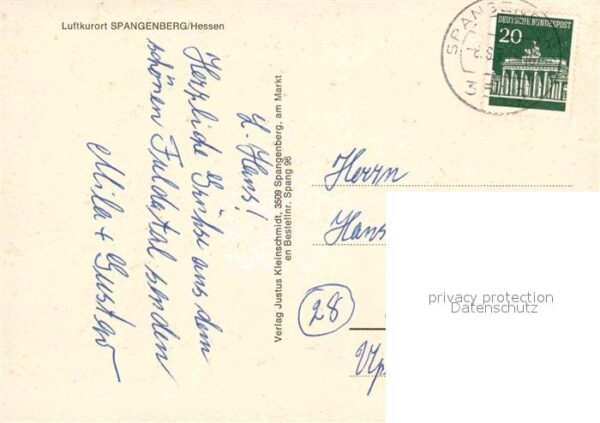 Luftkurort SPANGENBERG/Hessen
L. Hans!
Herzliche Grüße aus dem
schönen Fuldatal senden
Mila + Gustav
Verlag Justus Kleinschmidt, 3509 Spangenberg, am Markt
en Bestellnr. Spang 96
SPANGEN
DEUTSCHE BUNDESPOST
20
Herrn
Hans
28
privacy protection
Datenschutz